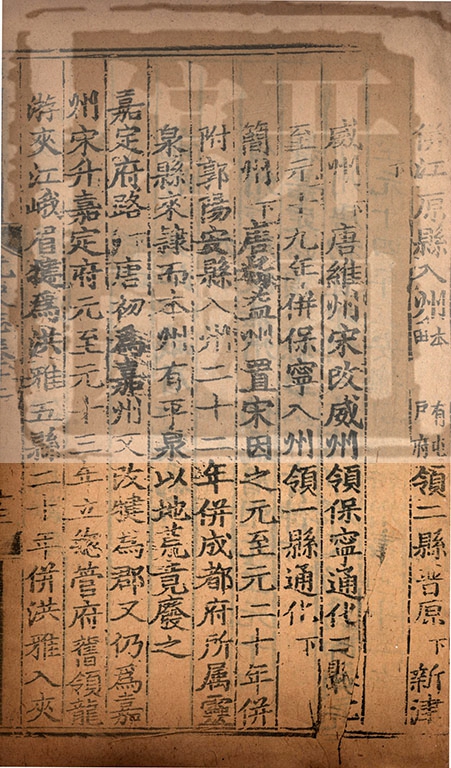 併江原縣入州本有屯田戶府領二縣晋原下新津下
威州下唐維州宋改威州領保寧通化二縣元
至元十九年併保寧入州領一縣通化下
簡州下唐析益州置宋因之元至元二十年併
附郭陽安縣入州二十二年併成都府所属靈
泉縣來隸而本州有平泉以地荒竟廢之
嘉定府路下唐初為嘉州又改犍為郡又仍爲嘉
州宋升嘉定府元至元十三年立總管府舊領龍
游夾江峨眉犍爲洪雅五縣二十年併洪雅入夾